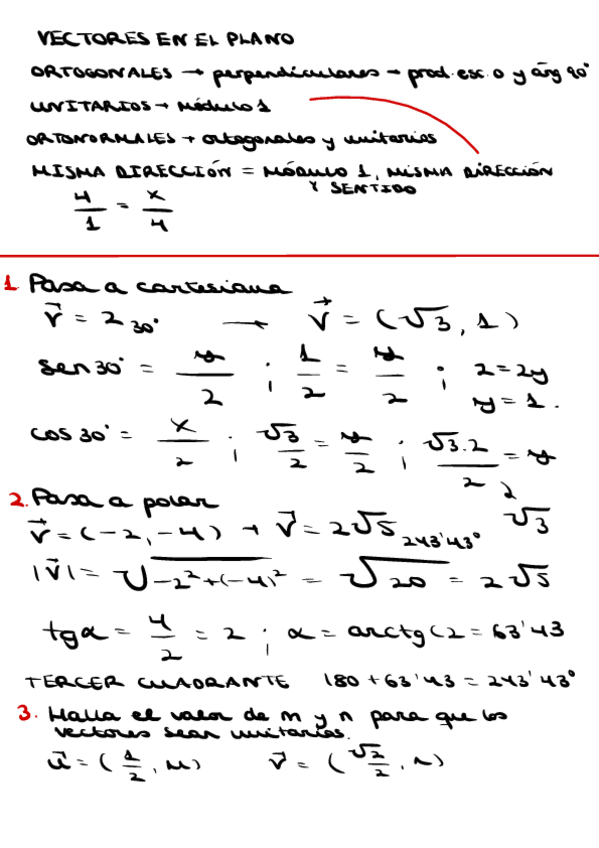 VECTORES EN EL PLANO
ORTOGONALES → perpendiculares → prod. esc. 0 y áng 90°
UNITARIOS → módulo 1
ORTONORMALES → ortogonales y unitarios
MISMA DIRECCIÓN = MÓDULO 1, MISMA DIRECCIÓN
Y SENTIDO
4/1 = x/4
1. Pasa a cartesiana
v⃗ = 2 30° → v⃗ = (√3, 1)
sen 30° = y/2 ; 1/2 = y/2 ; 2 = 2y
y = 1.
cos 30° = x/2 ; √3/2 = y/2 ; √3·2/2 = y
√3
2. Pasa a polar
v⃗ = (-2, -4) → v⃗ = 2√5 243'43°
|v⃗| = √-2²+(-4)² = √20 = 2√5
tg α = 4/2 = 2 ; α = arctg(2 = 63'43
TERCER CUADRANTE 180 + 63'43 = 243'43°
3. Halla el valor de m y n para que los
vectores sean unitarios.
u⃗ = (1/2, m) v⃗ = (√2/2, n)